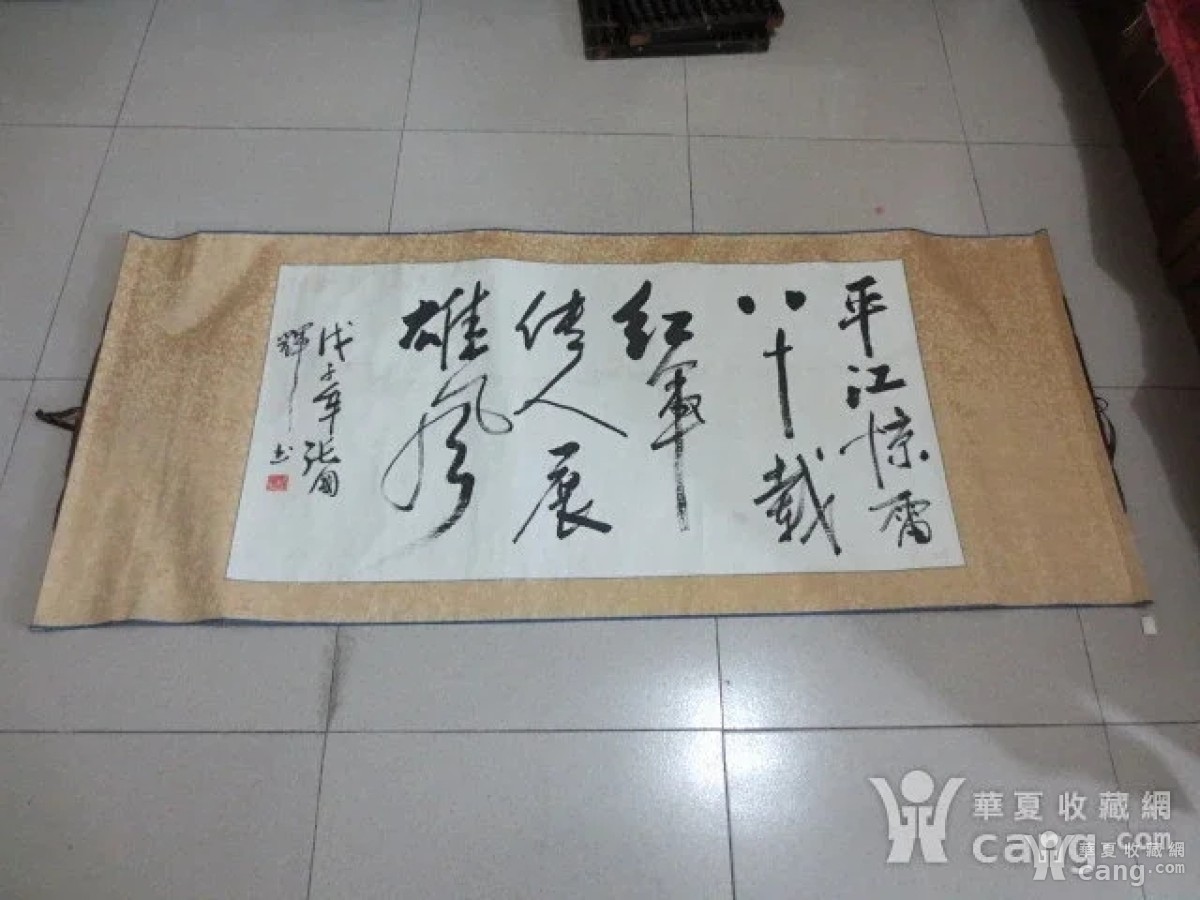 平江惊雷
八十载
红軍
传人展
雄风
戊子年张国
輝书
華夏收藏網
cang.com
華夏收藏網
cang.com